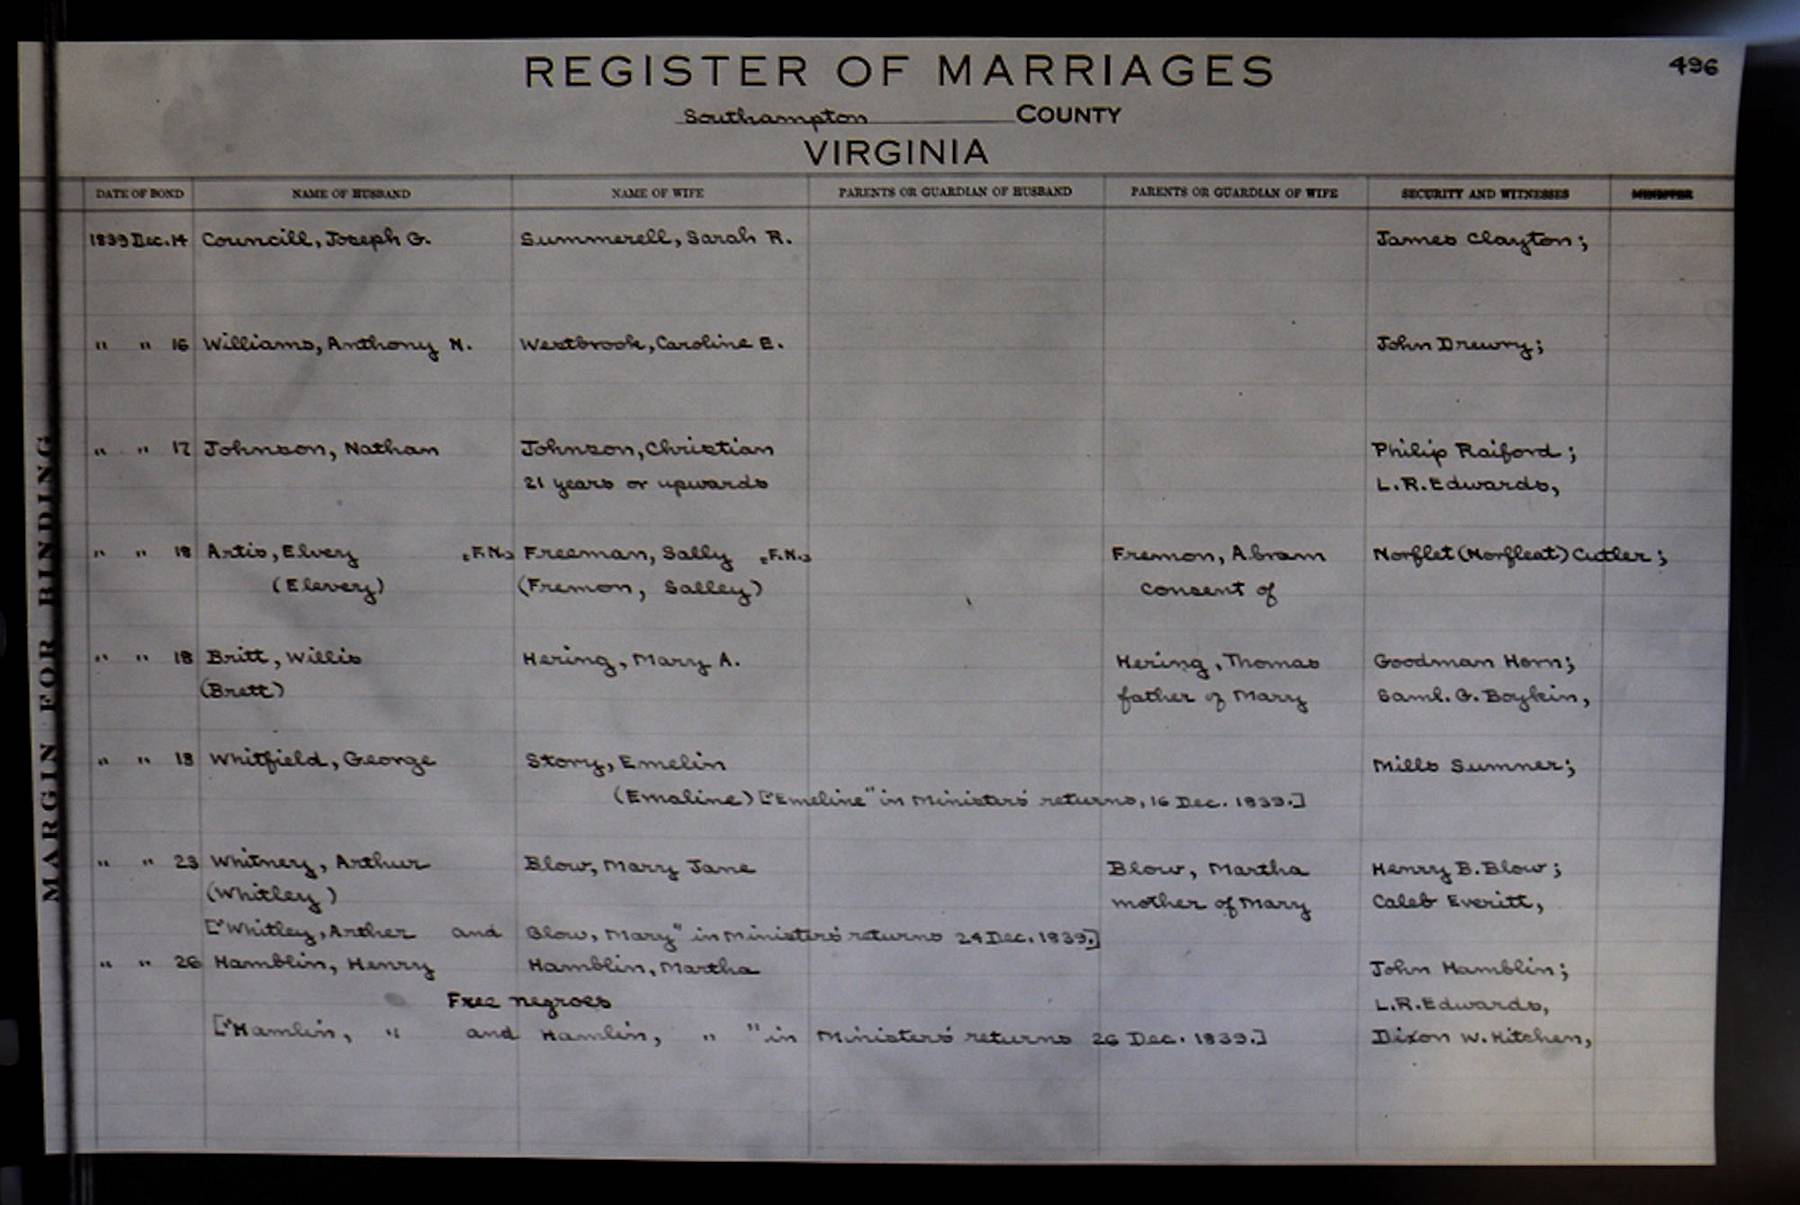 REGISTER OF MARRIAGES
496
Southampton COUNTY
VIRGINIA
DATE OF BOND NAME OF HUSBAND NAME OF WIFE PARENTS OR GUARDIAN OF HUSBAND PARENTS OR GUARDIAN OF WIFE SECURITY AND WITNESSES MINISTER
1839 Dec. 14 Councill, Joseph G. Summerell, Sarah R. James Clayton;
" " 16 Williams, Anthony N. Westbrook, Caroline E. John Drewry;
" " 17 Johnson, Nathan Johnson, Christian Philip Raiford;
21 years or upwards L.R. Edwards,
" " 18 Artis, Elvery "F.N." Freeman, Sally "F.N." Fremon, Abram Norflet (Norfleat) Cutler;
(Elevery) (Fremon, Salley) consent of
" " 18 Britt, Willis Hering, Mary A. Hering, Thomas Goodman Horn;
(Brett) father of Mary Saml. G. Boykin,
" " 18 Whitfield, George Story, Emelin Mills Sumner;
(Emaline) ["Emeline" in Ministers' returns, 16 Dec. 1839.]
" " 23 Whitney, Arthur Blow, Mary Jane Blow, Martha Henry B. Blow;
(Whitley) mother of Mary Caleb Everitt,
["Whitley, Arther and Blow, Mary" in Ministers' returns 24 Dec. 1839.]
" " 26 Hamblin, Henry Hamblin, Martha John Hamblin;
Free negroes L.R. Edwards,
["Hamlin, " and Hamlin, " " in Ministers' returns 26 Dec. 1839.] Dixon W. Kitchen,
MARGIN FOR BINDING